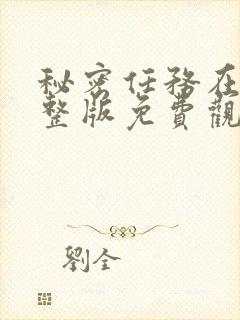 秘密任務在
整版免費觀
劉全